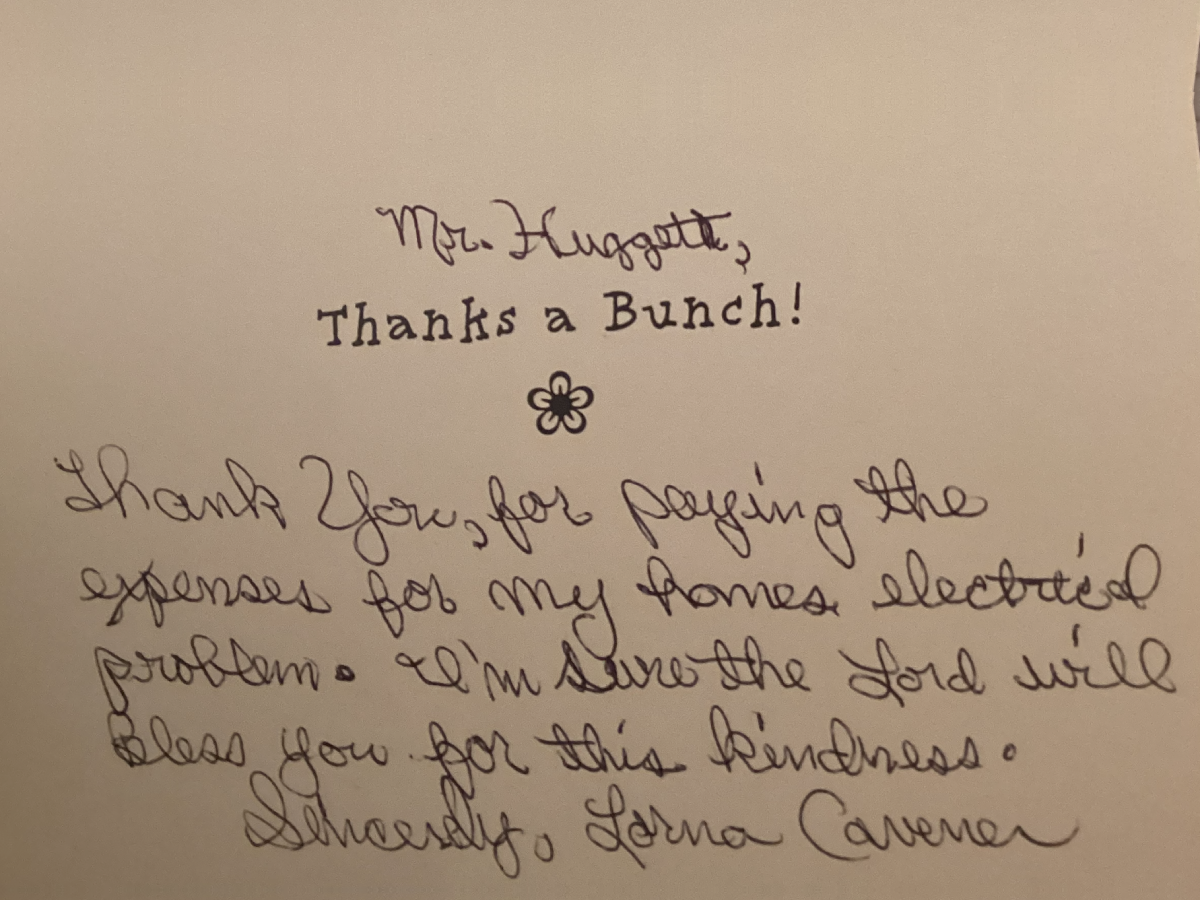 Mr. Huggett,
Thanks a Bunch!
Thank You, for paying the
expenses for my homes electrical
problem. I'm sure the Lord will
Bless you for this kindness.
Sincerely, Lorna Cavener